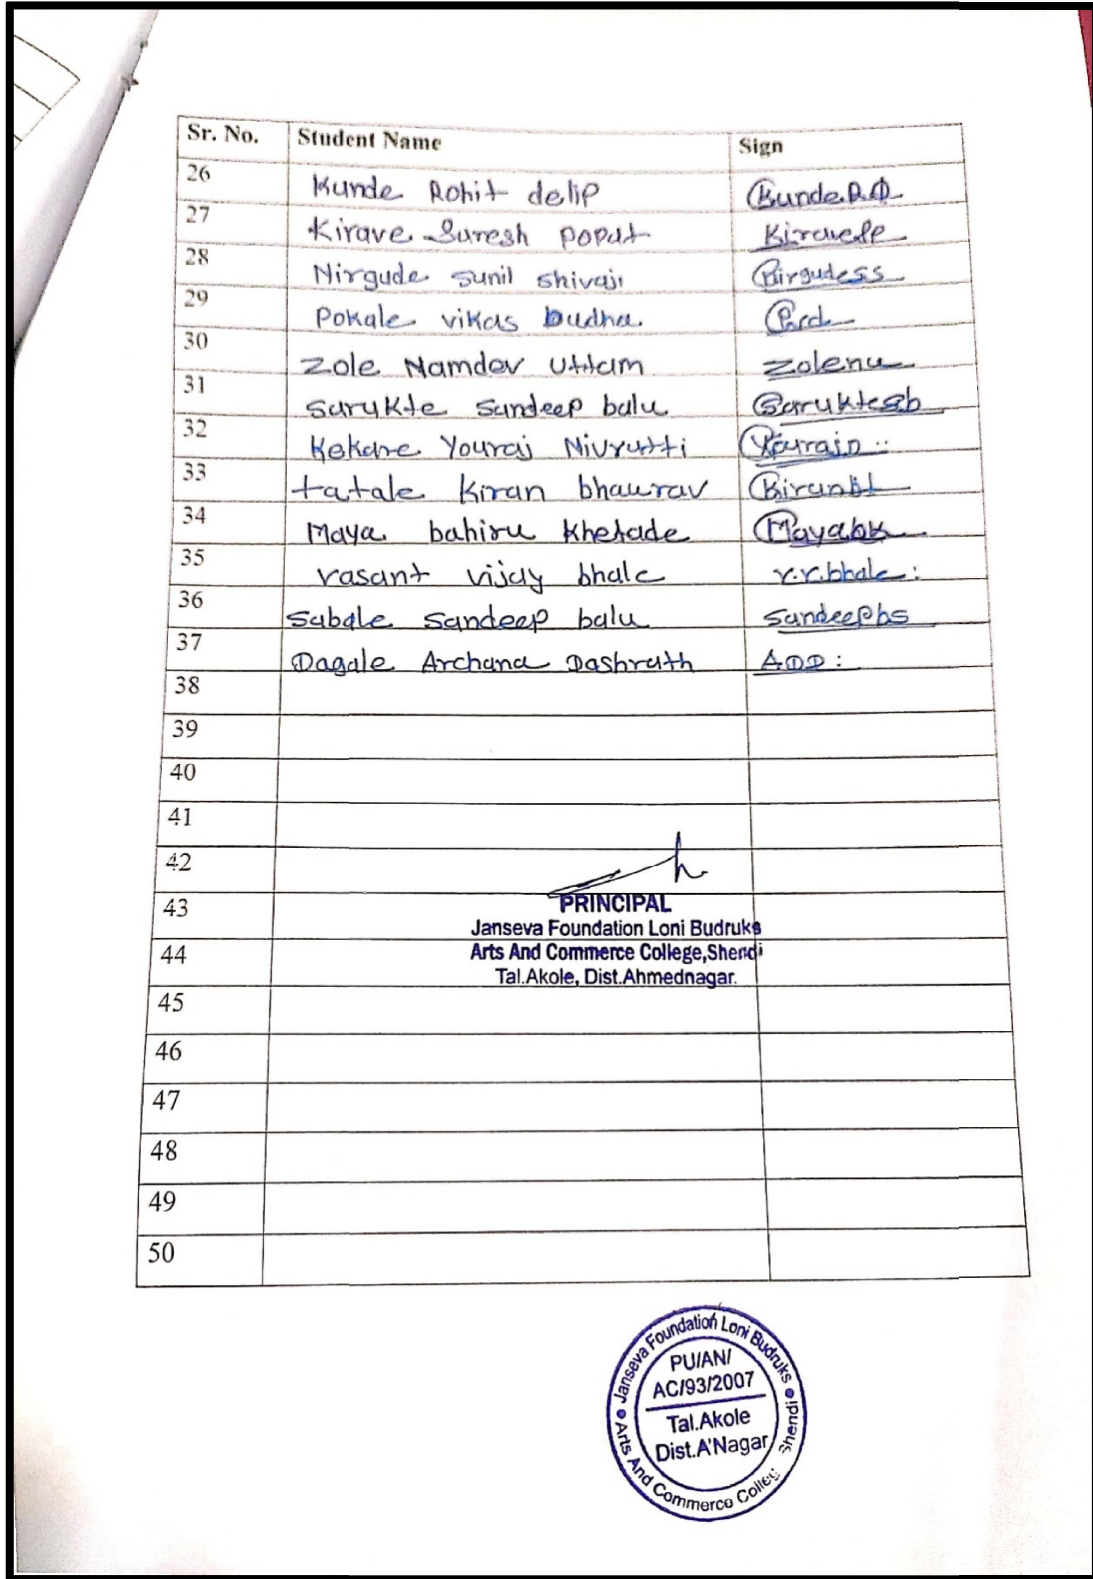 Sr. No. Student Name Sign
26 Kunde Rohit delip Kunde.R.D
27 Kirave Suresh Popat KiraveSP
28 Nirgude sunil shivaji Nirgudess
29 Pokale vikas budha.
30 Zole Namdev Uttam Zolenu
31 Sarukte Sandeep balu Saruktesb
32 Kekare Youraj Nivrutti
33 tatale Kiran bhaurav
34 Maya bahiru Khetade Mayabk
35 vasant vijay bhale v.v.bhale:
36 Sabale Sandeep balu Sandeepbs
37 Dagale Archana Dashrath ADD:
38
39
40
41
42
43
44
45
46
47
48
49
50
PRINCIPAL
Janseva Foundation Loni Budruks
Arts And Commerce College,Shendi
Tal.Akole, Dist.Ahmednagar.
Janseva Foundation Loni Budruks
Arts And Commerce College Shendi
PU/AN/
AC/93/2007
Tal.Akole
Dist.A'Nagar